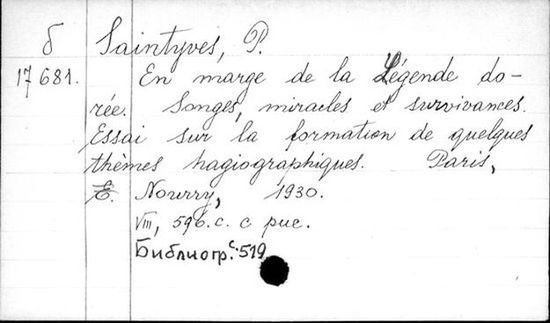 б Saintyves, P.
17681. En marge de la Légende do-
rée. Songes, miracles et survivances.
Essai sur la formation de quelques
thèmes hagiographiques. Paris,
E. Nourry, 1930.
VIII, 596 с. с рис.
Библиогр. с. 519